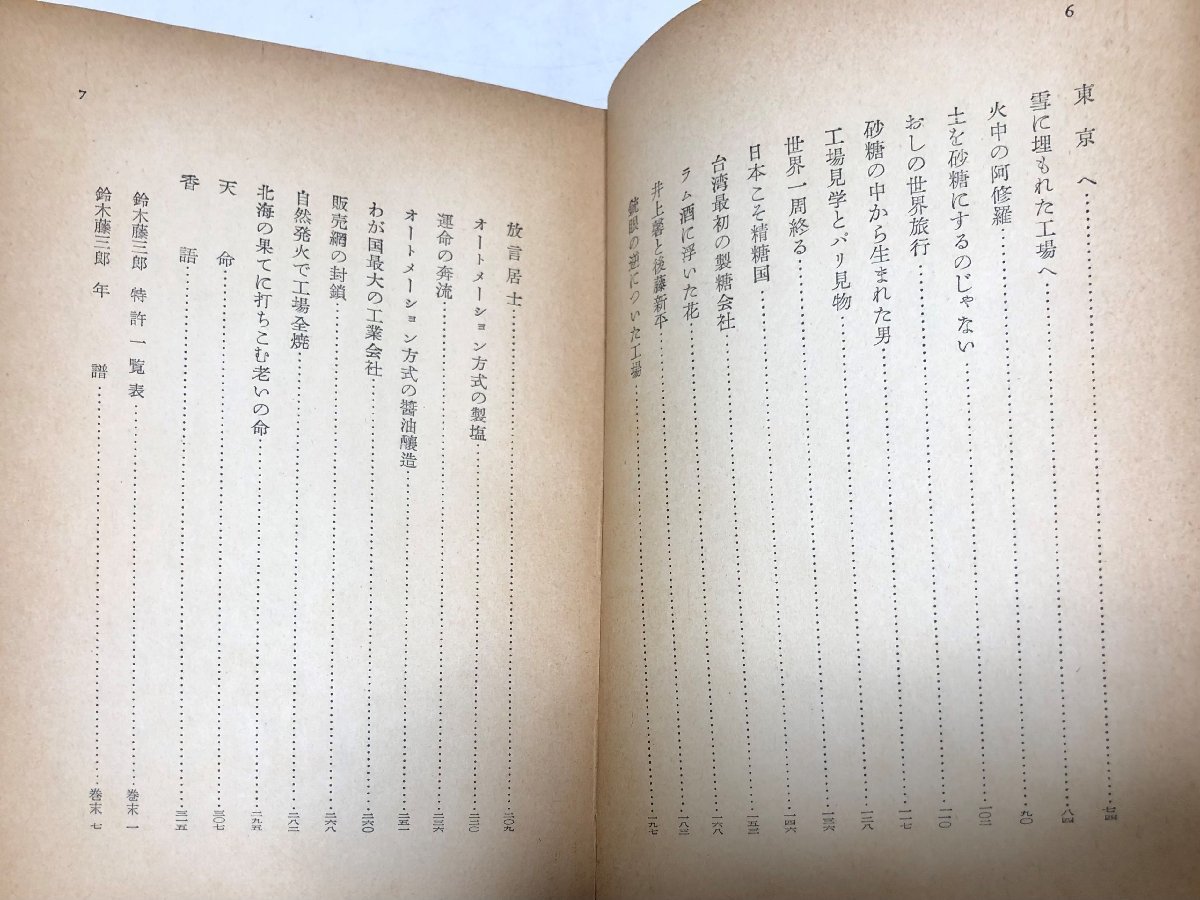 6
東京へ……七四
雪に埋もれた工場へ……八四
火中の阿修羅……九〇
土を砂糖にするのじゃない……一〇二
おしの世界旅行……一一〇
砂糖の中から生まれた男……一一七
工場見学とパリ見物……一二八
世界一周終る……一三六
日本こそ精糖国……一四六
台湾最初の製糖会社……一五三
ラム酒に浮いた花……一六八
井上馨と後藤新平……一八三
鏡眼の逆についた工場……一九七
7
放言居士……二〇九
オートメーション方式の製塩……二二〇
運命の奔流……二三六
オートメーション方式の醬油醸造……二五一
わが国最大の工業会社……二六〇
販売網の封鎖……二六八
自然発火で工場全焼……二八二
北海の果てに打ちこむ老いの命……二九五
天命……三〇七
香語……三一五
鈴木藤三郎特許一覧表……巻末一
鈴木藤三郎年譜……巻末七